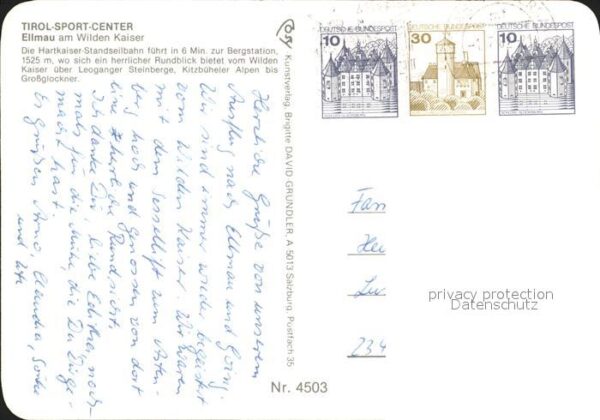 TIROL-SPORT-CENTER
Ellmau am Wilden Kaiser
Die Hartkaiser-Standseilbahn führt in 6 Min. zur Bergstation,
1525 m, wo sich ein herrlicher Rundblick bietet vom Wilden
Kaiser über Leoganger Steinberge, Kitzbüheler Alpen bis
Großglockner.
Herzliche Grüße von unserem
Ausflug nach Ellmau und Going.
Wir sind immer wieder begeistert
vom Wilden Kaiser. Wir waren
mit dem Sessellift zum Asten-
berg hoch und genossen von dort
eine herrliche Rundsicht.
Ich danke Dir, liebe Editha, noch-
mals für die Mühe, die Du Dir ge-
macht hast.
Es grüßen Arno, Claudia,
und
Kunstverlag, Brigitte DAVID GRÜNDLER, A 5013 Salzburg, Postfach 35
Nr. 4503
10 DEUTSCHE BUNDESPOST
30 DEUTSCHE BUNDESPOST
10 DEUTSCHE BUNDESPOST
Fam
234
privacy protection
Datenschutz